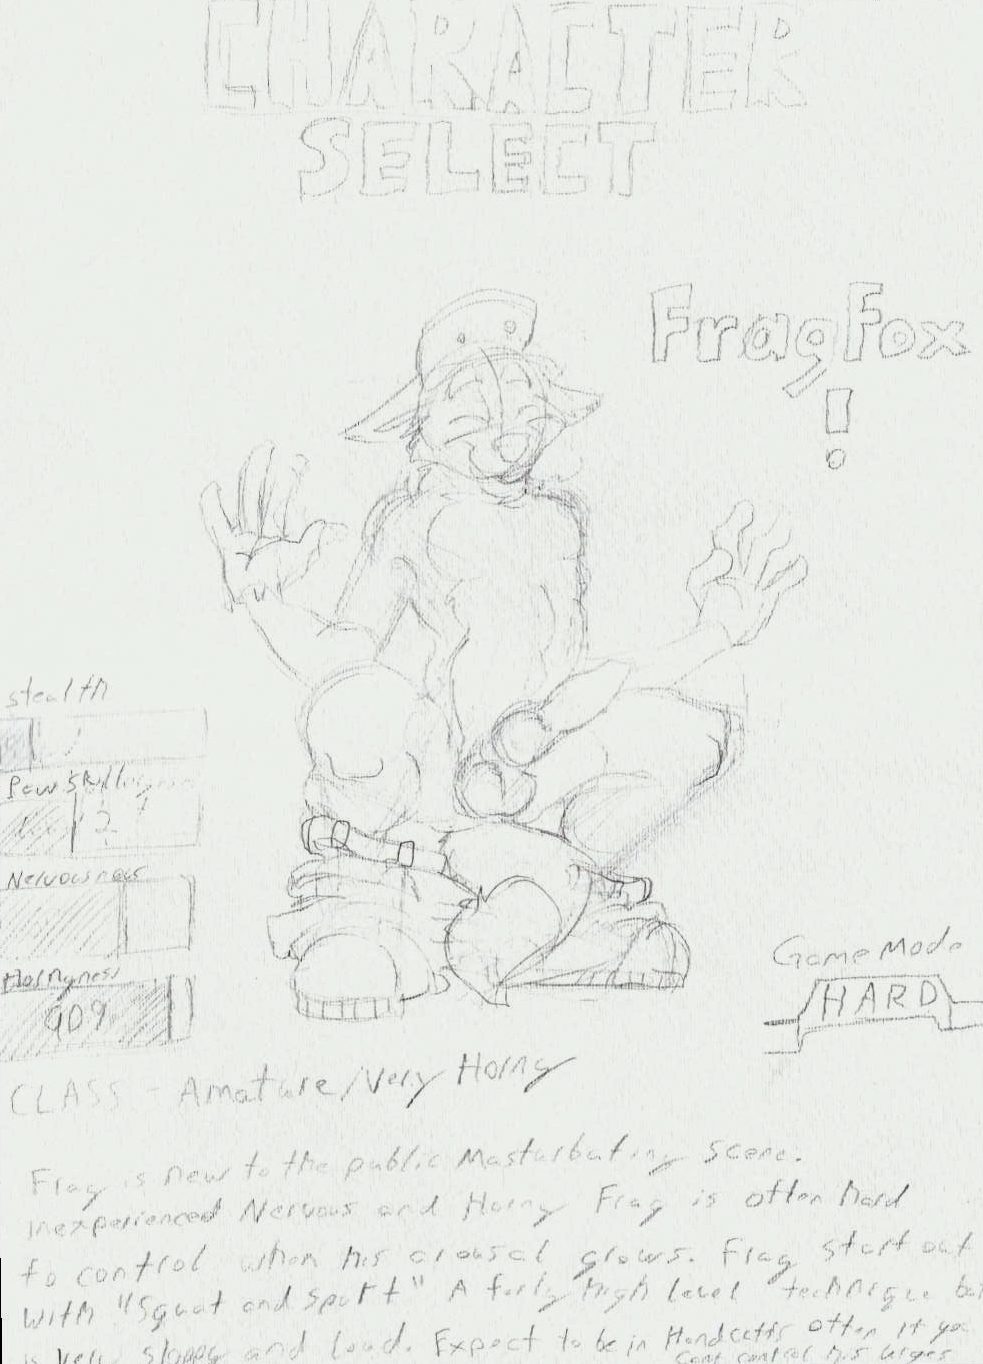 CHARACTER
SELECT
FragFox
!
stealth
Paw Skill
2
Nervousness
Hornyness
909
GameMode
HARD
CLASS - Amature/Very Horny
Frag is new to the public Masturbating scene.
inexperienced Nervous and Horny Frag is often hard
to control when his arousal grows. Frag start out
With "Squat and Spurt" A fairly high level technique but
is very sloppy and loud. Expect to be in Handcuffs often if you
cant control his urges